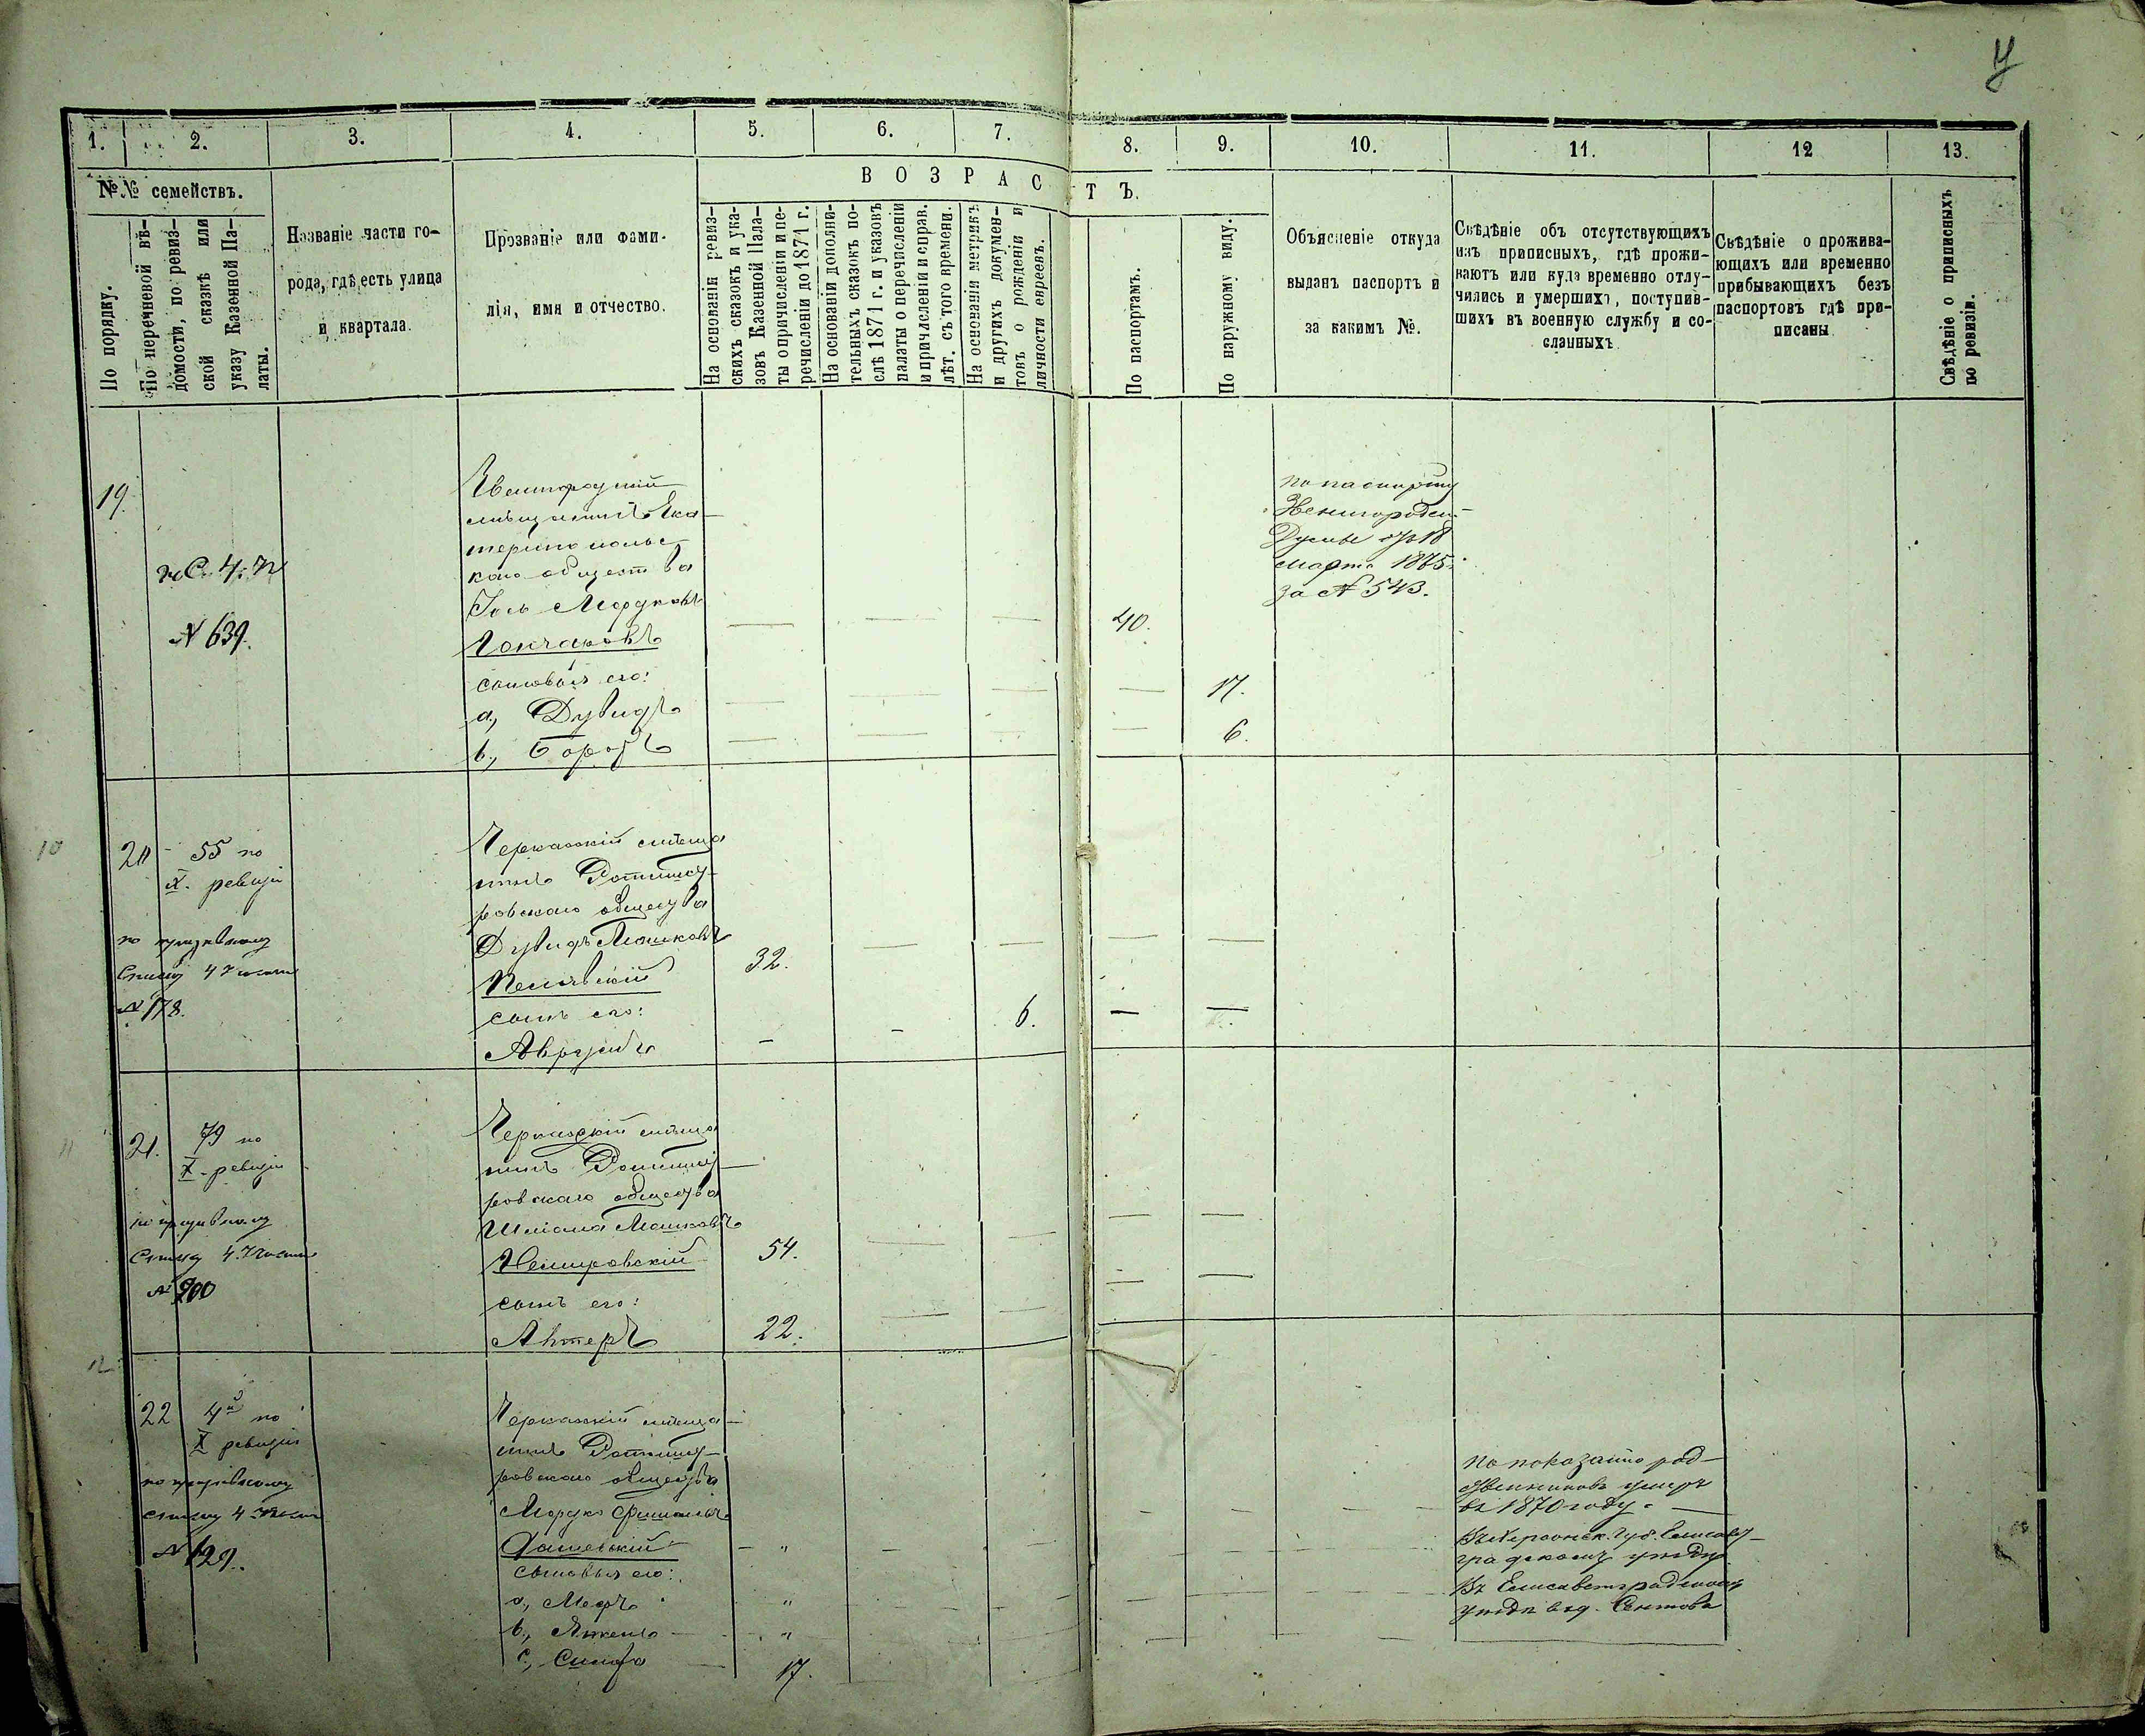 1. 2. 3. 4. 5. 6. 7. 8. 9. 10. 11. 12 13.
№№ семействъ.
По порядку.
По перечневой вѣ-
домости, по ревиз-
ской сказкѣ или
указу Казенной Па-
латы.
Названіе части го-
рода, гдѣ есть улица
и кварталa.
Прозваніе или фами-
лія, имя и отчество.
ВОЗРАСТЪ.
На основаніи ревиз-
скихъ сказокъ и ука-
зовъ Казенной Пала-
ты о причисленіи и пе-
речисленіи до 1871 г.
На основаніи дополни-
тельныхъ сказокъ по-
слѣ 1871 г. и указовъ
палаты о перечисленіи
и причисленіи и справ.
лѣт. съ того времени.
На основаніи метрикъ
и другихъ докумен-
товъ о рожденіи и
личности евреевъ.
По паспортамъ.
По наружному виду.
Объясненіе откуда
выданъ паспортъ и
за какимъ №.
Свѣдѣніе объ отсутствующихъ
изъ приписныхъ, гдѣ прожи-
ваютъ или куда временно отлу-
чились и умершихъ, поступив-
шихъ въ военную службу и со-
сланныхъ
Свѣдѣніе о прожива-
ющихъ или временно
прибывающихъ безъ
паспортовъ гдѣ при-
писаны
Свѣдѣніе о приписныхъ
по ревизіи.
19.
N 639.
Звенигородскій
мѣщанинъ Ека-
теринопольс-
каго общества
Мордковъ
Гончаровъ
сыновья его:
а, Дувидъ
b., Борохъ
40.
17.
6.
по паспорту
Звенигородск.
Думы отъ 18
марта 1875
за N 543.
20 55 по
X. ревизіи
по призывному
списку 4 части
N 178.
Черкасскій мѣща
нинъ Ротмист-
ровскаго общества
Дувидъ Мошковъ
сынъ его:
Аврумъ
32.
6.
21. 79 по
X ревизіи
по призывному
списку 4. части
N 200
Черкасскій мѣща
нинъ Ротмист-
ровскаго общества
Мошковъ
Немировскій
сынъ его:
54.
22.
22 4й по
X ревизіи
по призывному
списку 4 части
N 129.
Черкасскій мѣща-
нинъ Ротмист-
ровскаго общества
Мордко
Дашевскій
сыновья его:
а, Меер
b.,
c.,
17.
По показанію род-
ственниковъ умеръ
въ 1870 году.
Въ Херсонск. губ. Елисавет-
градскомъ уѣздѣ
Въ Елисаветградскомъ
уѣздѣ